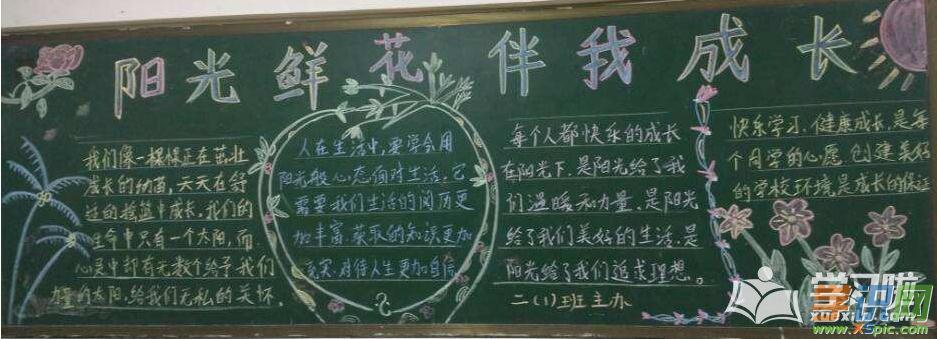 阳光鲜花伴我成长
我们像一棵棵正在茁壮
成长的幼苗，天天在舒
适的摇篮中成长。我们的
生命中只有一个太阳，而
心灵中却有无数个给予我们
力量的太阳，给我们无私的关怀。
人在生活中，要学会用
阳光般心态面对生活。它
需要我们生活的阅历更
加丰富，获取的知识更加
充实，对待人生更加自信
每个人都快乐的成长
在阳光下，是阳光给了我
们温暖和力量，是阳光
给了我们美好的生活，是
阳光给了我们追求理想。
二（1）班主办
快乐学习、健康成长，是每
个同学的心愿，创建美好
的学校环境，是成长的保证
学习啦
xuexila.com
学识网
www.XSpic.com